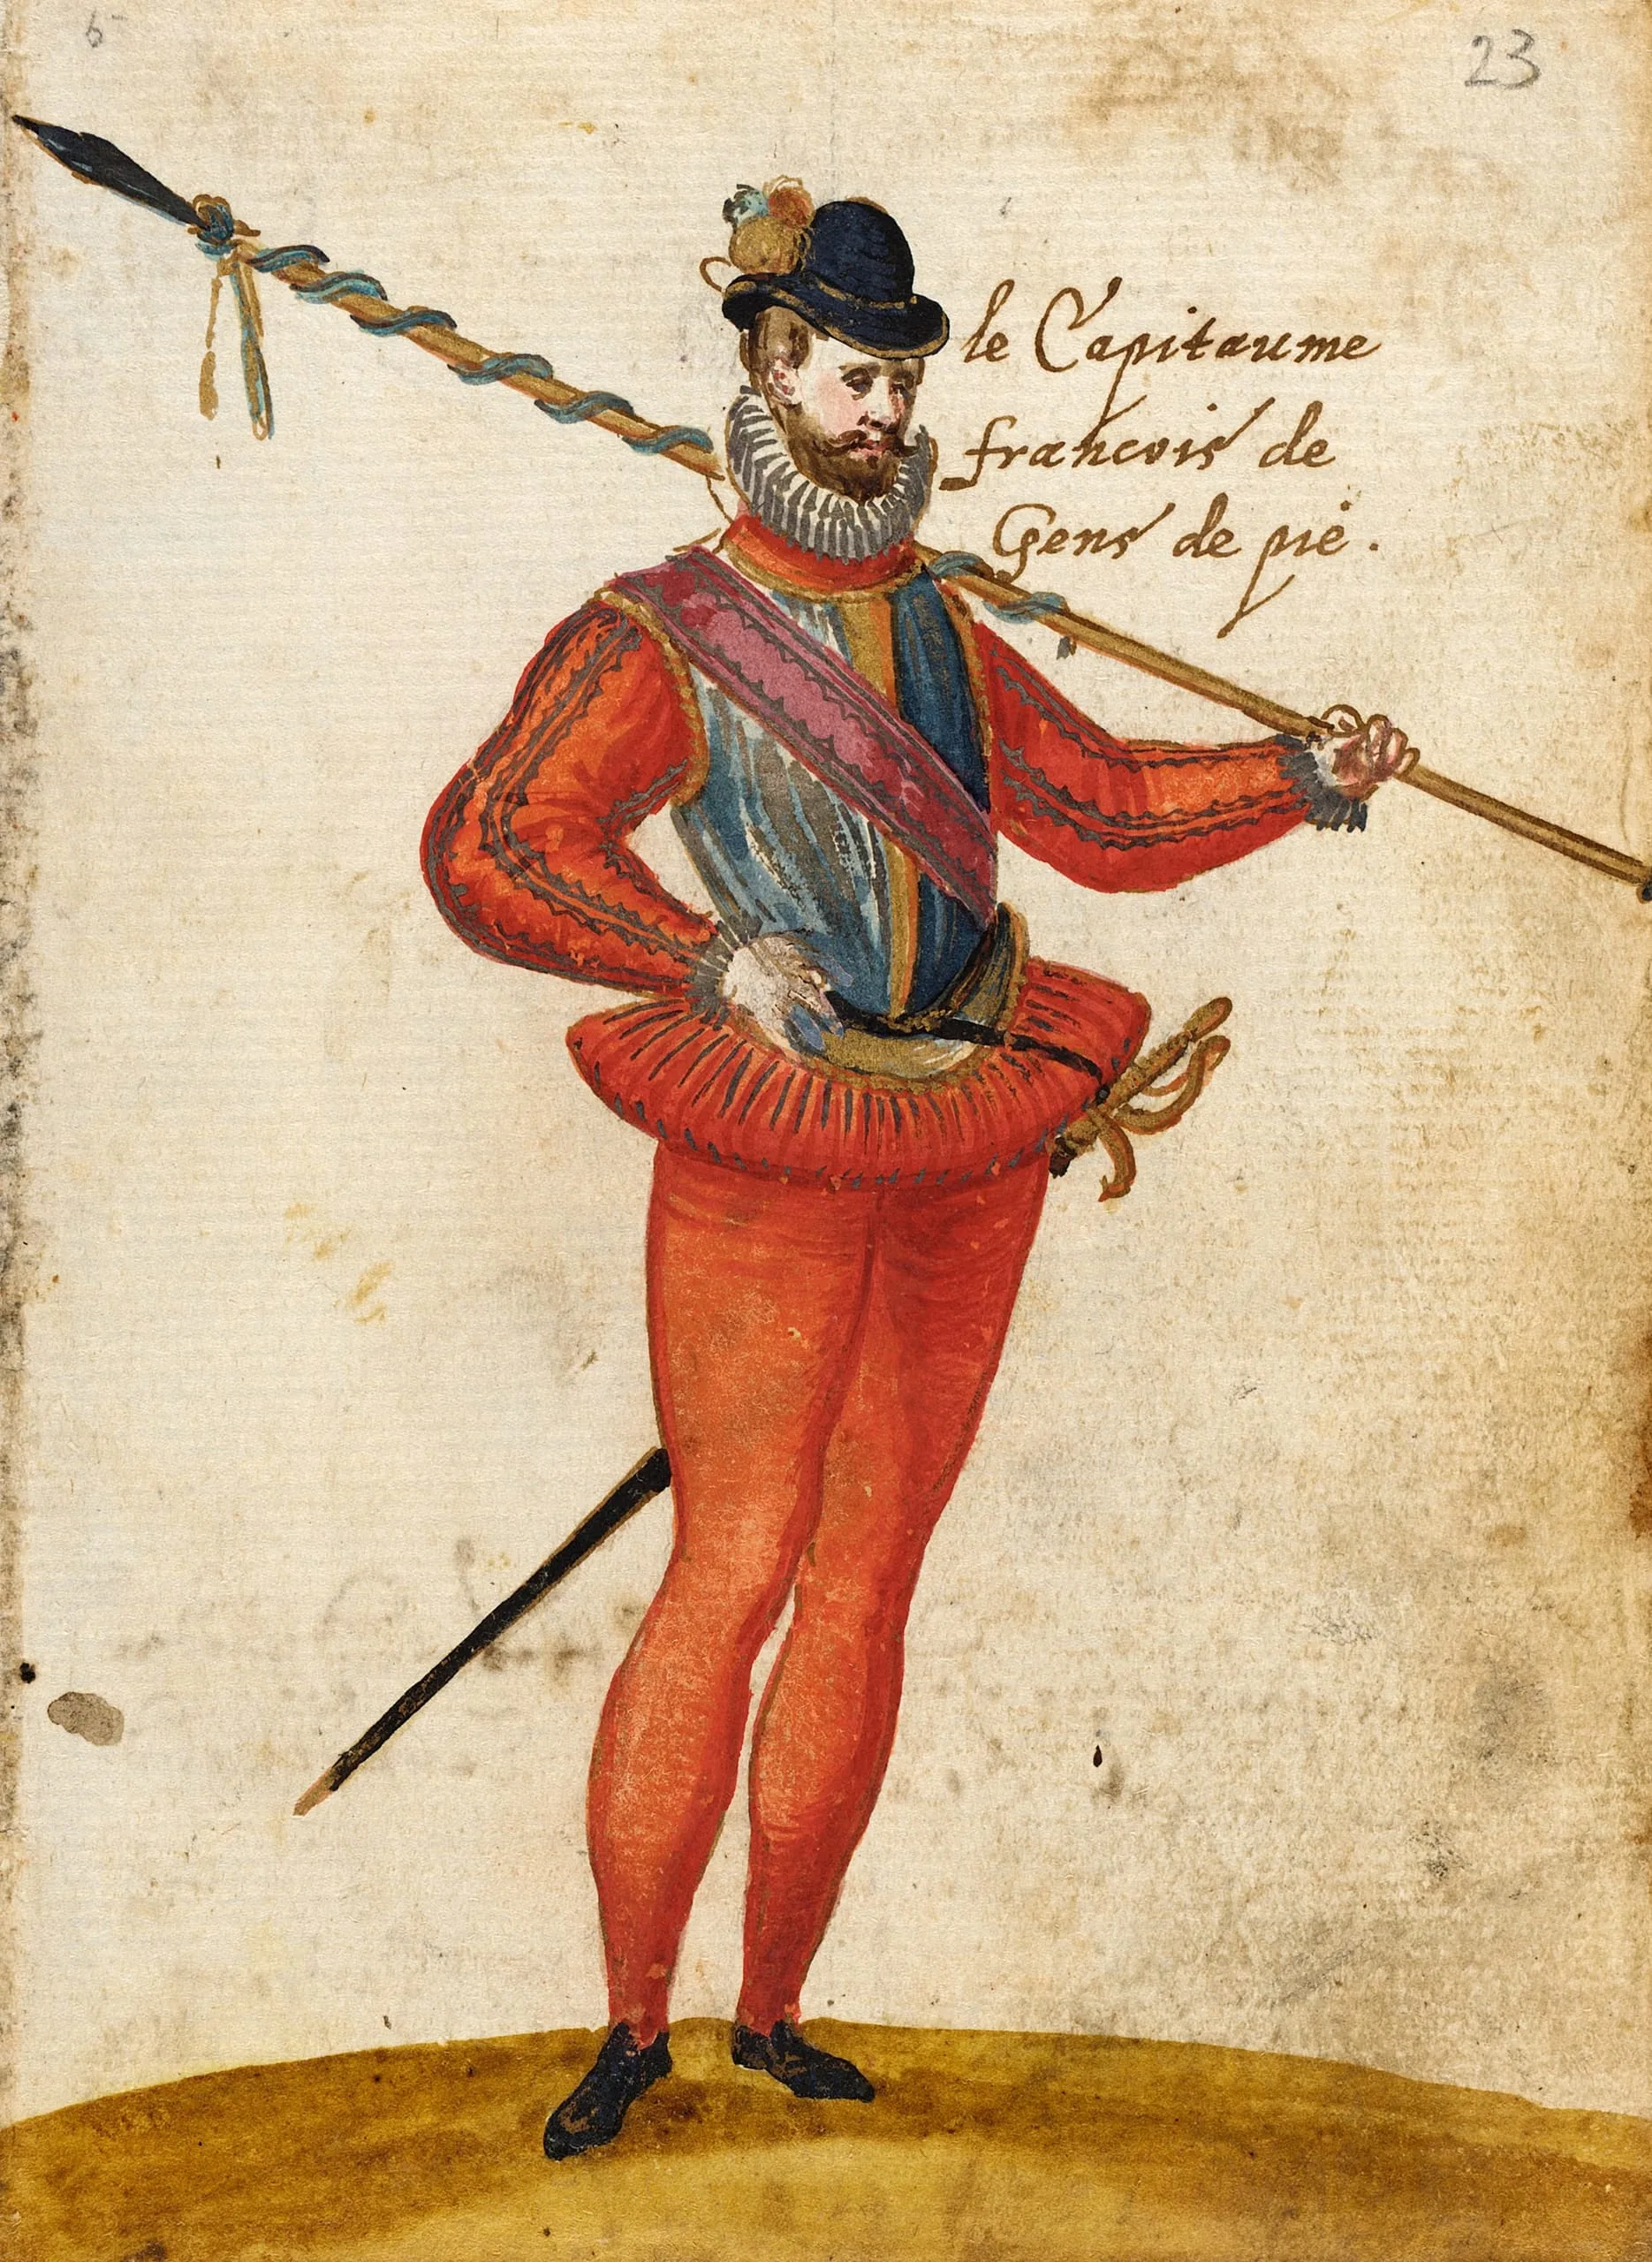 23
le Capitaume
francois de
Gens de pié.